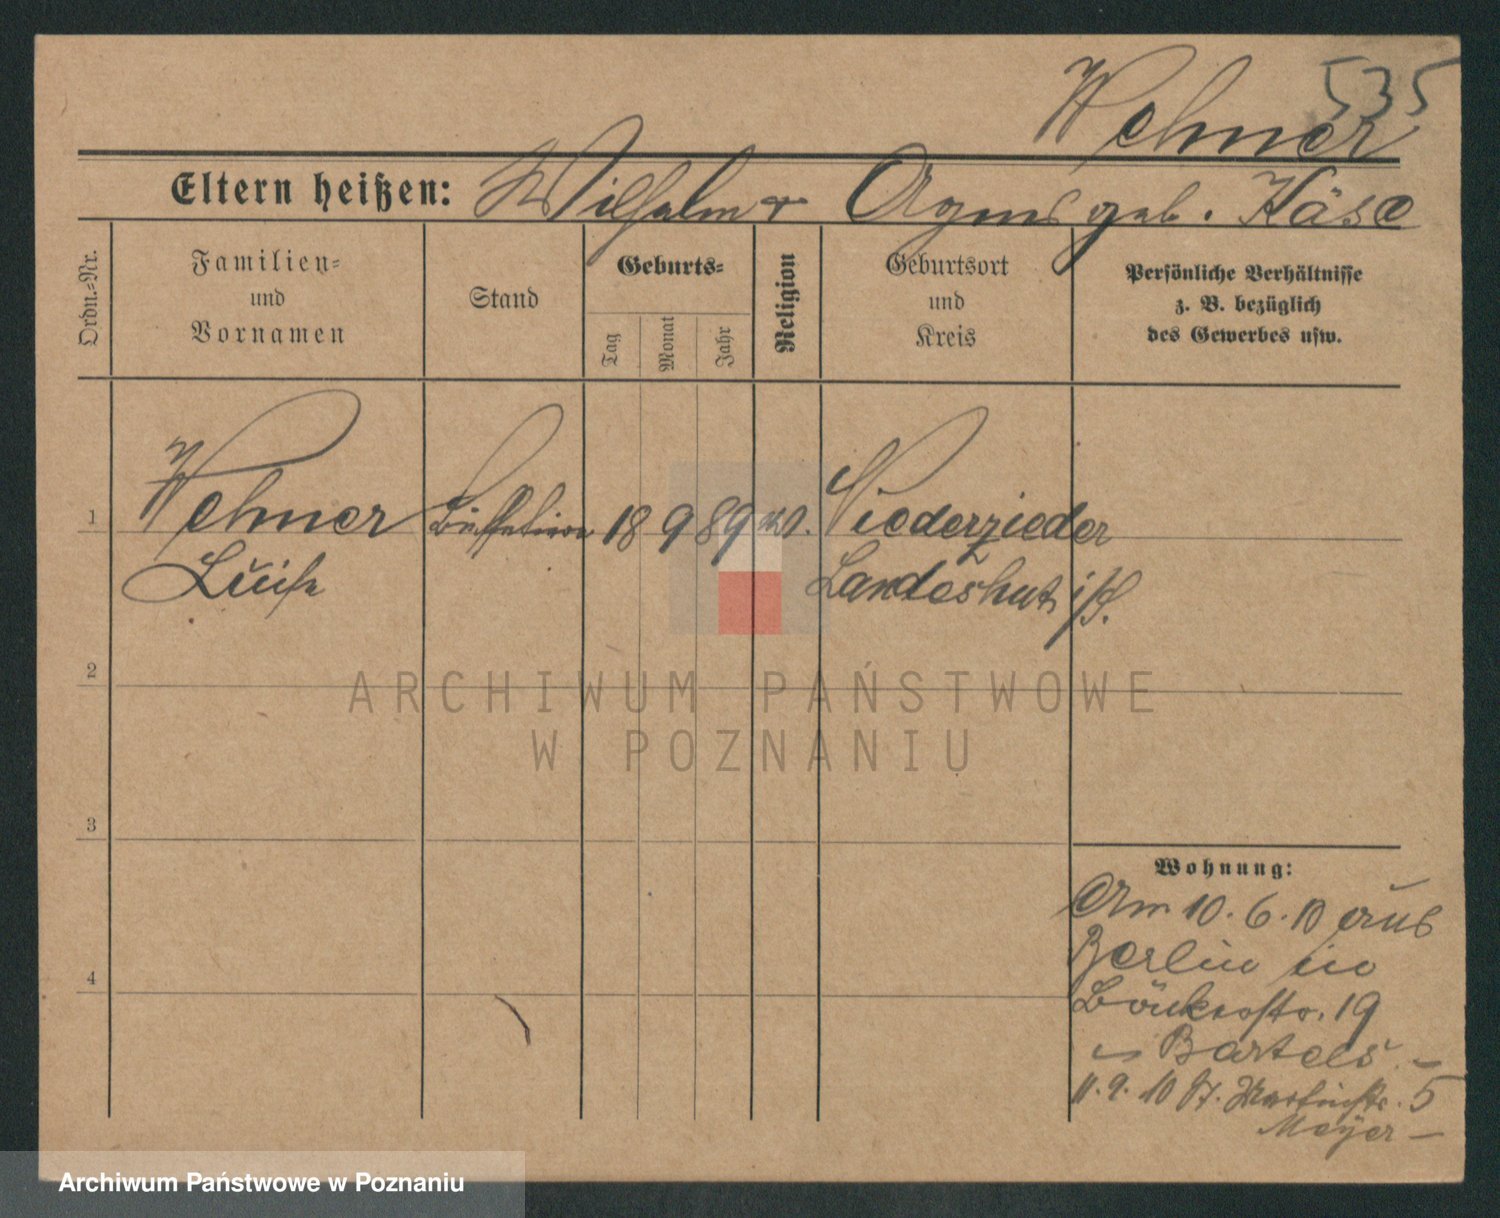 535
Wehner
Eltern heißen: Wilhelm + Agnes geb. Käse
Ordn.-Nr.
Familien- und Vornamen
Stand
Geburts-
Tag
Monat
Jahr
Religion
Geburtsort und Kreis
Persönliche Verhältnisse
z. B. bezüglich
des Gewerbes usw.
1 Wehner 18 9 89 Niederzieder
Luise Landeshut i/S.
2
3
4
Wohnung:
Am 10. 6. 10 aus
Berlin in
Bäckerstr. 19
- Bartels -
11. 9. 10 St. Martinstr. 5
Meyer -
ARCHIWUM PAŃSTWOWE
W POZNANIU
Archiwum Państwowe w Poznaniu